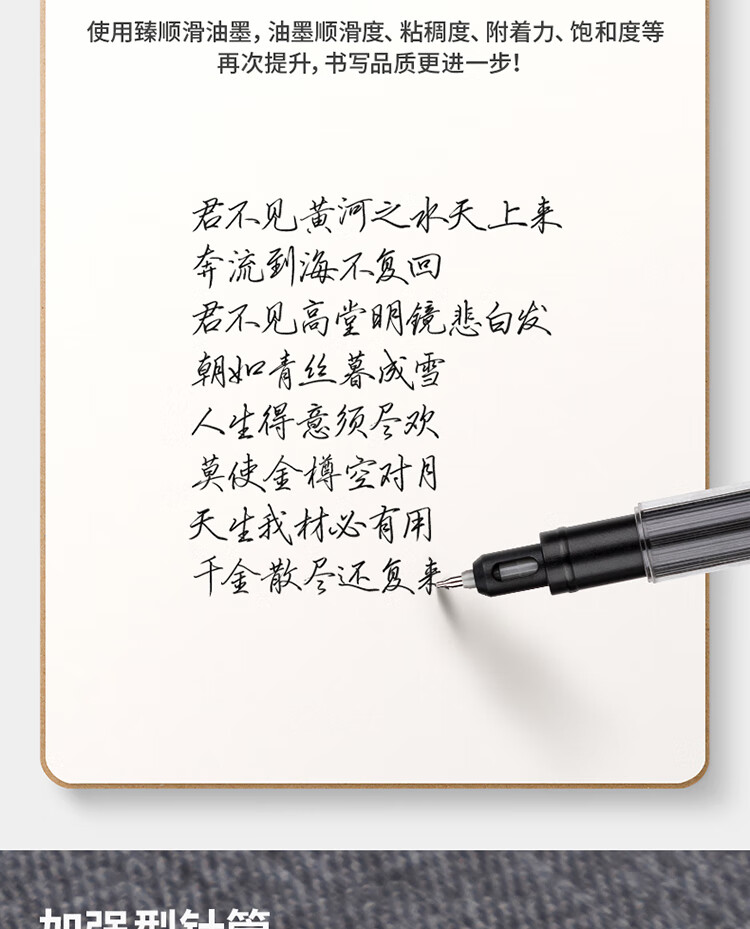 使用臻顺滑油墨，油墨顺滑度、粘稠度、附着力、饱和度等
再次提升，书写品质更进一步！
君不见黄河之水天上来
奔流到海不复回
君不见高堂明镜悲白发
朝如青丝暮成雪
人生得意须尽欢
莫使金樽空对月
天生我材必有用
千金散尽还复来
加强型针管